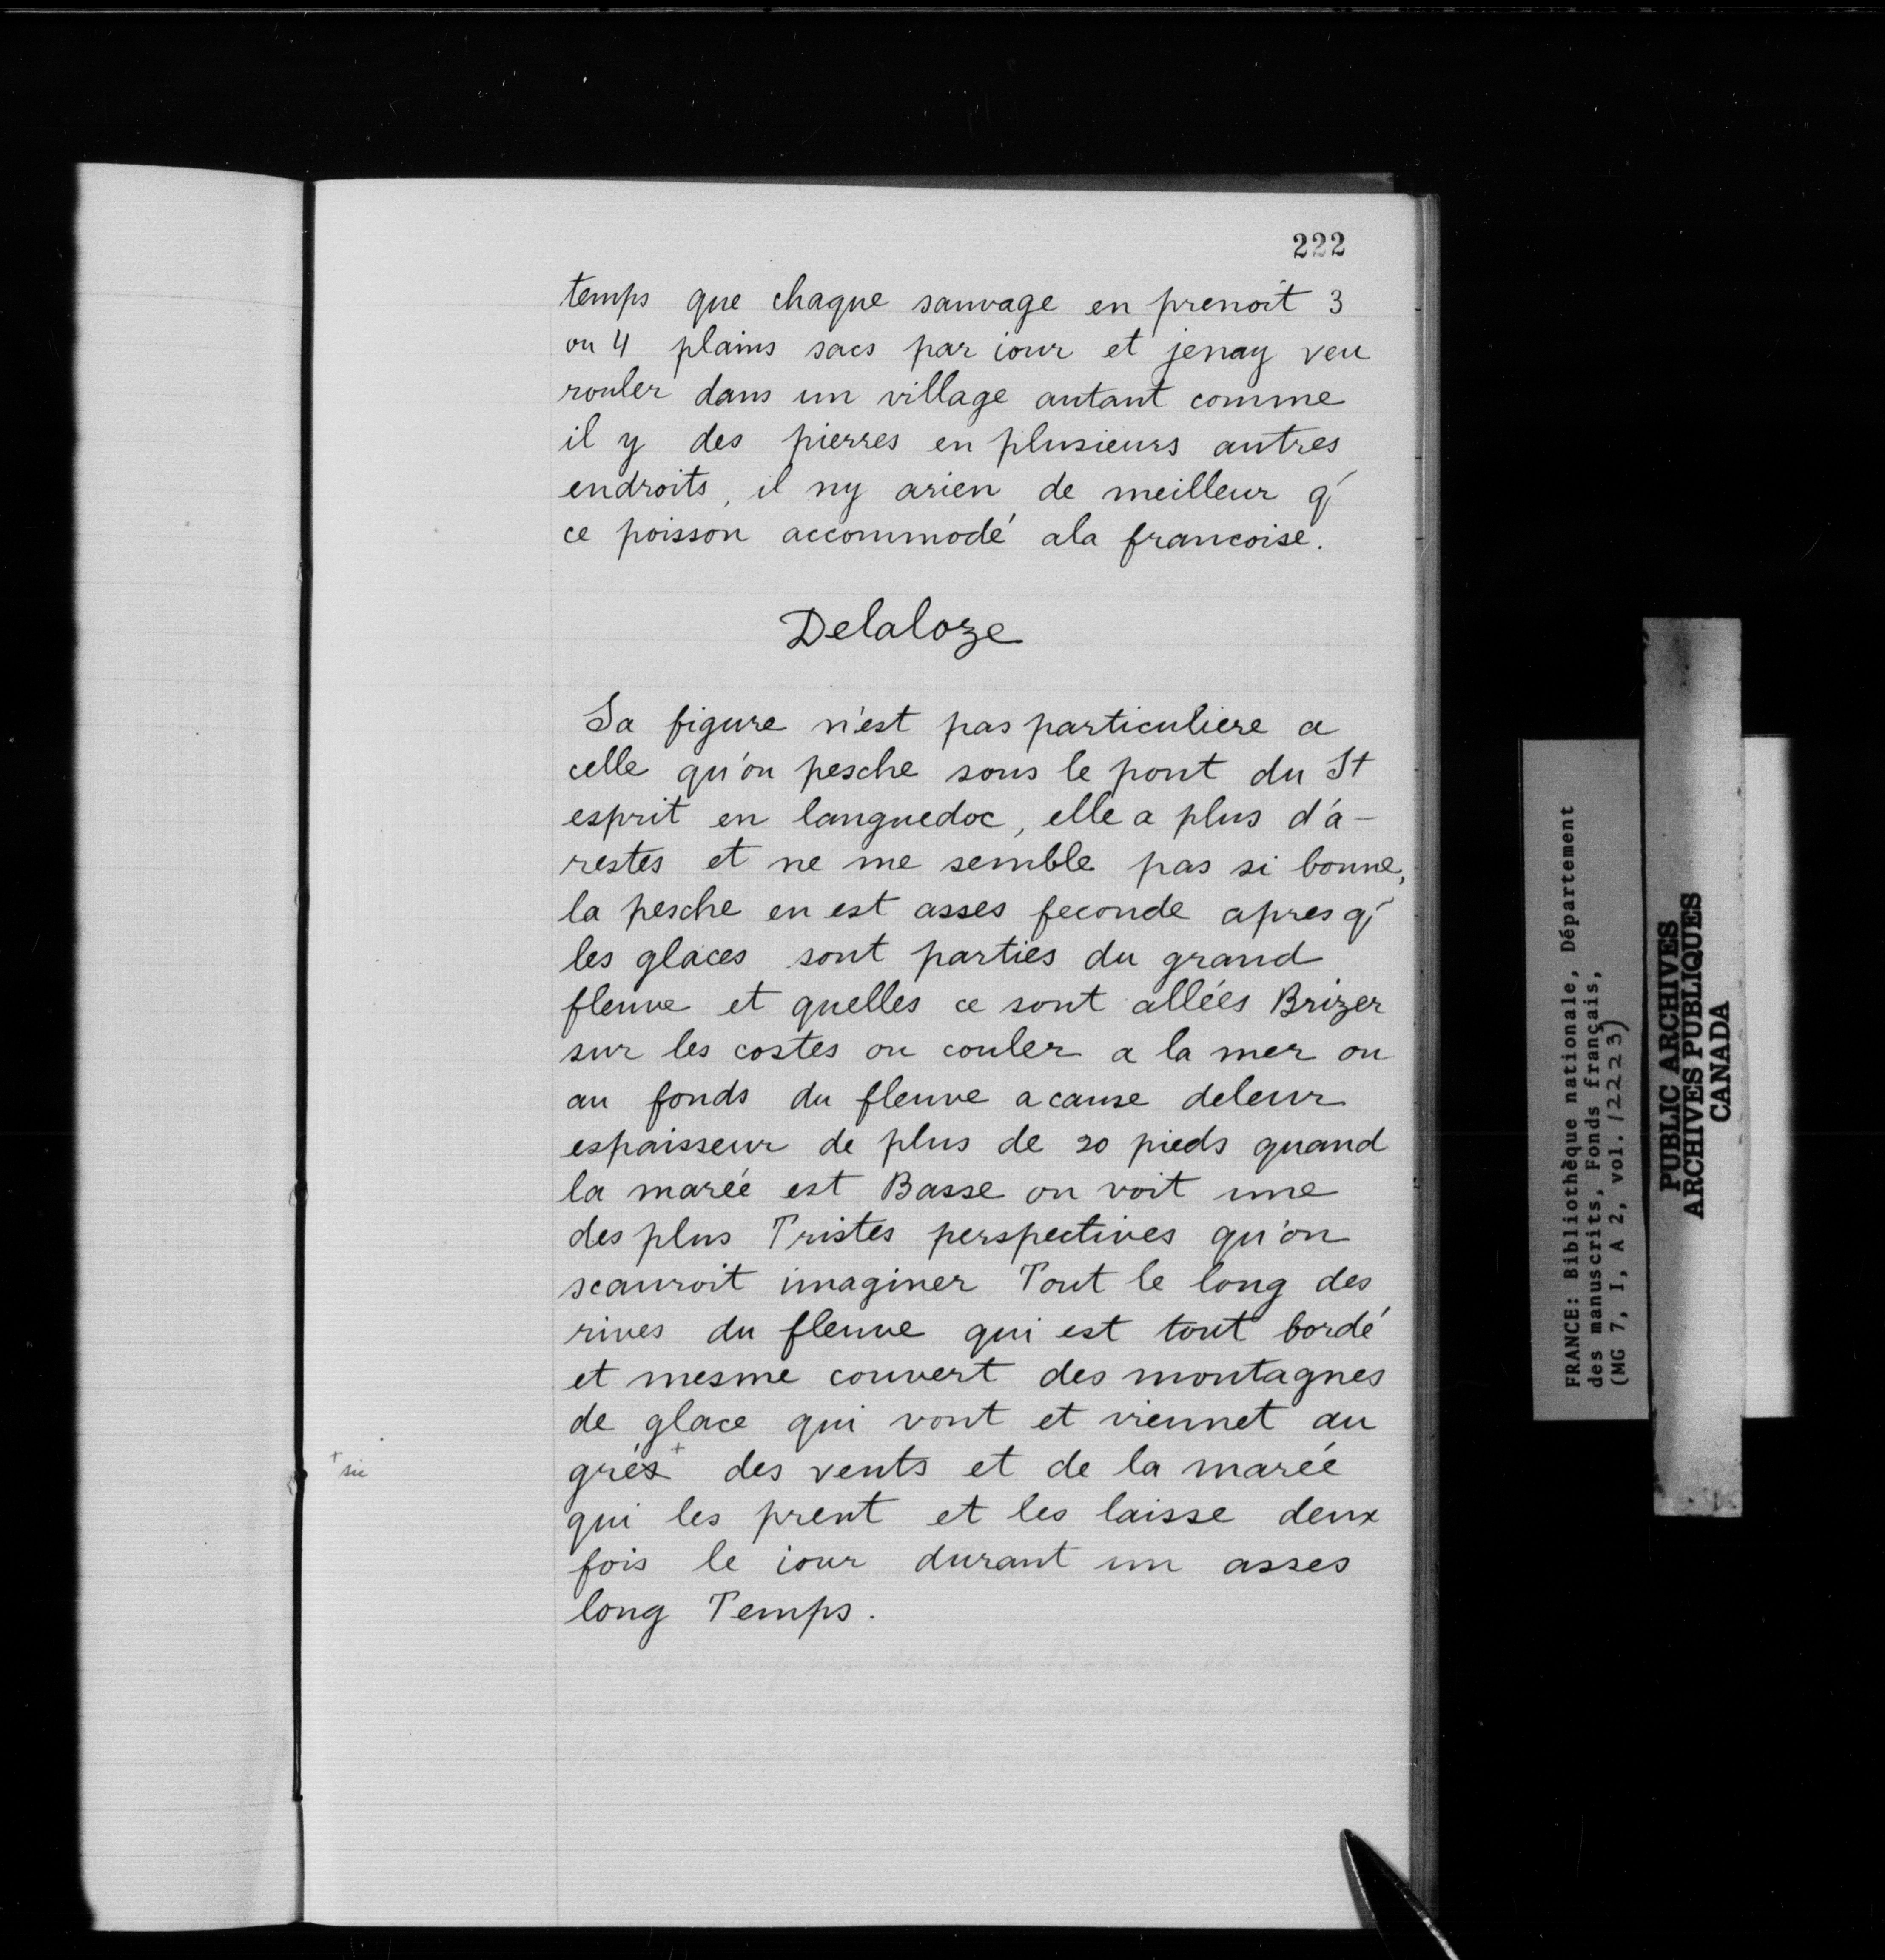 222
temps que chaque sauvage en prenoit 3
ou 4 plains sacs par iour et jenay veu
rouler dans un village autant comme
il y des pierres en plusieurs autres
endroits, il ny arien de meilleur q'
ce poisson accommodé ala francoise.
Delaloze
Sa figure n'est pas particuliere a
celle qu'on pesche sous le pont du St
esprit en languedoc, elle a plus d'a-
restes et ne me semble pas si bonne,
la pesche en est asses feconde apres q'
les glaces sont parties du grand
fleuve et quelles ce sont allées Brizer
sur les costes ou couler a la mer ou
au fonds du fleuve acause deleur
espaisseur de plus de 20 pieds quand
la marée est Basse on voit une
des plus Tristes perspectives qu'on
scauroit imaginer Tout le long des
rives du fleuve qui est tout bordé
et mesme couvert des montagnes
de glace qui vont et viennet au
+ sic
grés+ des vents et de la marée
qui les prent et les laisse deux
fois le iour durant un asses
long Temps.
FRANCE: Bibliothèque nationale, Département
des manuscrits, Fonds français,
(MG 7, I, A 2, vol. 12223)
PUBLIC ARCHIVES
ARCHIVES PUBLIQUES
CANADA